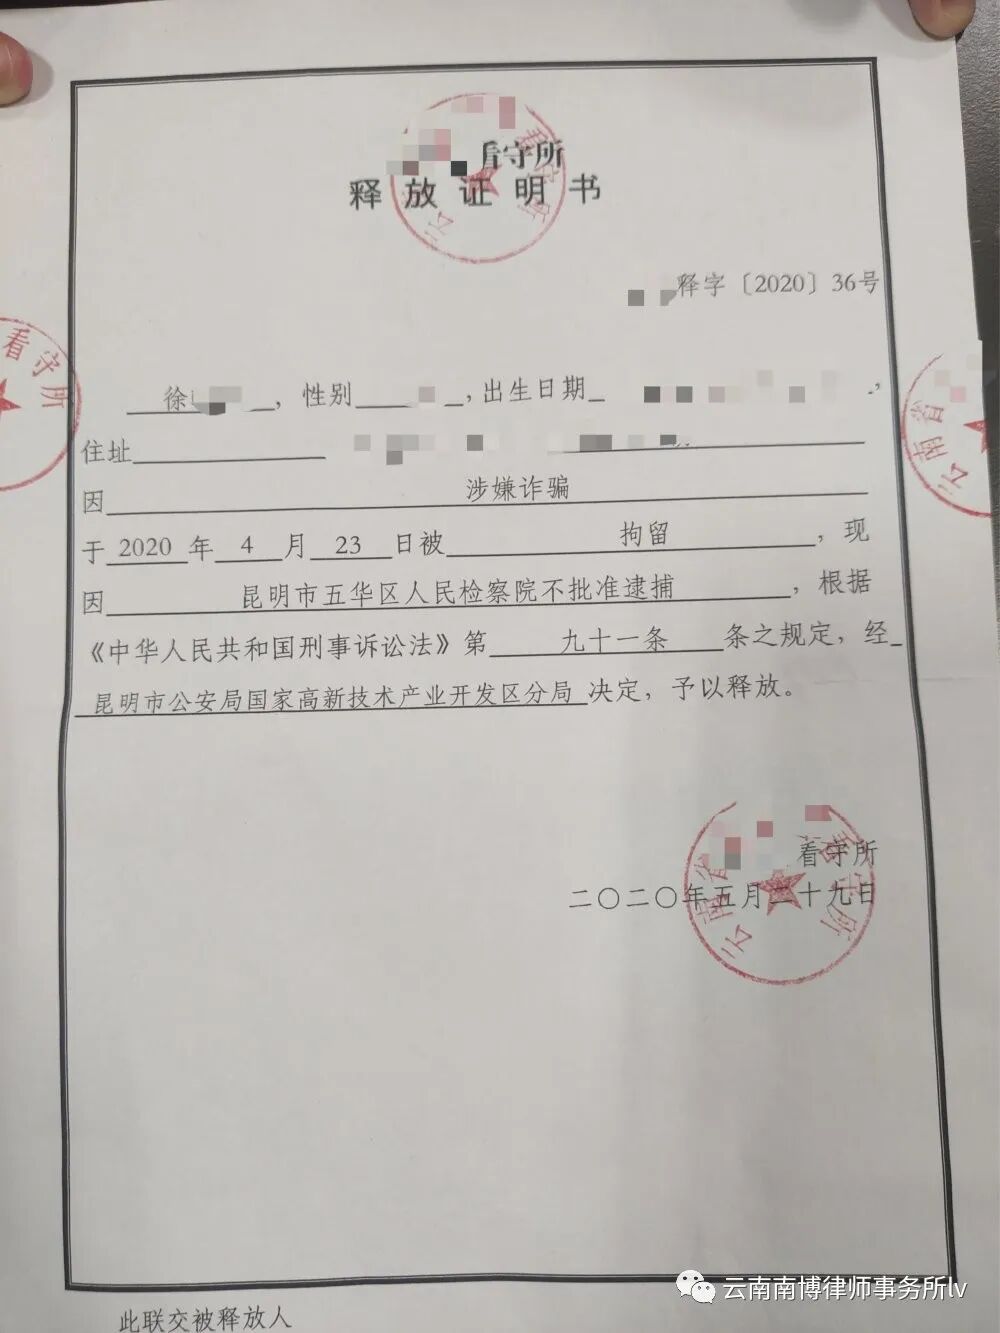 看守所
释放证明书
释字〔2020〕36号
徐 ，性别 ，出生日期 ，
住址
因 涉嫌诈骗
于 2020 年 4 月 23 日被 拘留 ，现
因 昆明市五华区人民检察院不批准逮捕 ，根据
《中华人民共和国刑事诉讼法》第 九十一条 条之规定，经
昆明市公安局国家高新技术产业开发区分局 决定，予以释放。
看守所
云南省
看守所
二〇二〇年五月二十九日
云南省 看守所
此联交被释放人
云南南博律师事务所lv